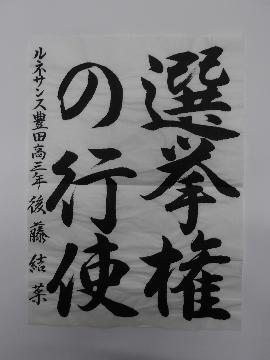 選挙権
の行使
ルネサンス豊田高三年 後藤結菜